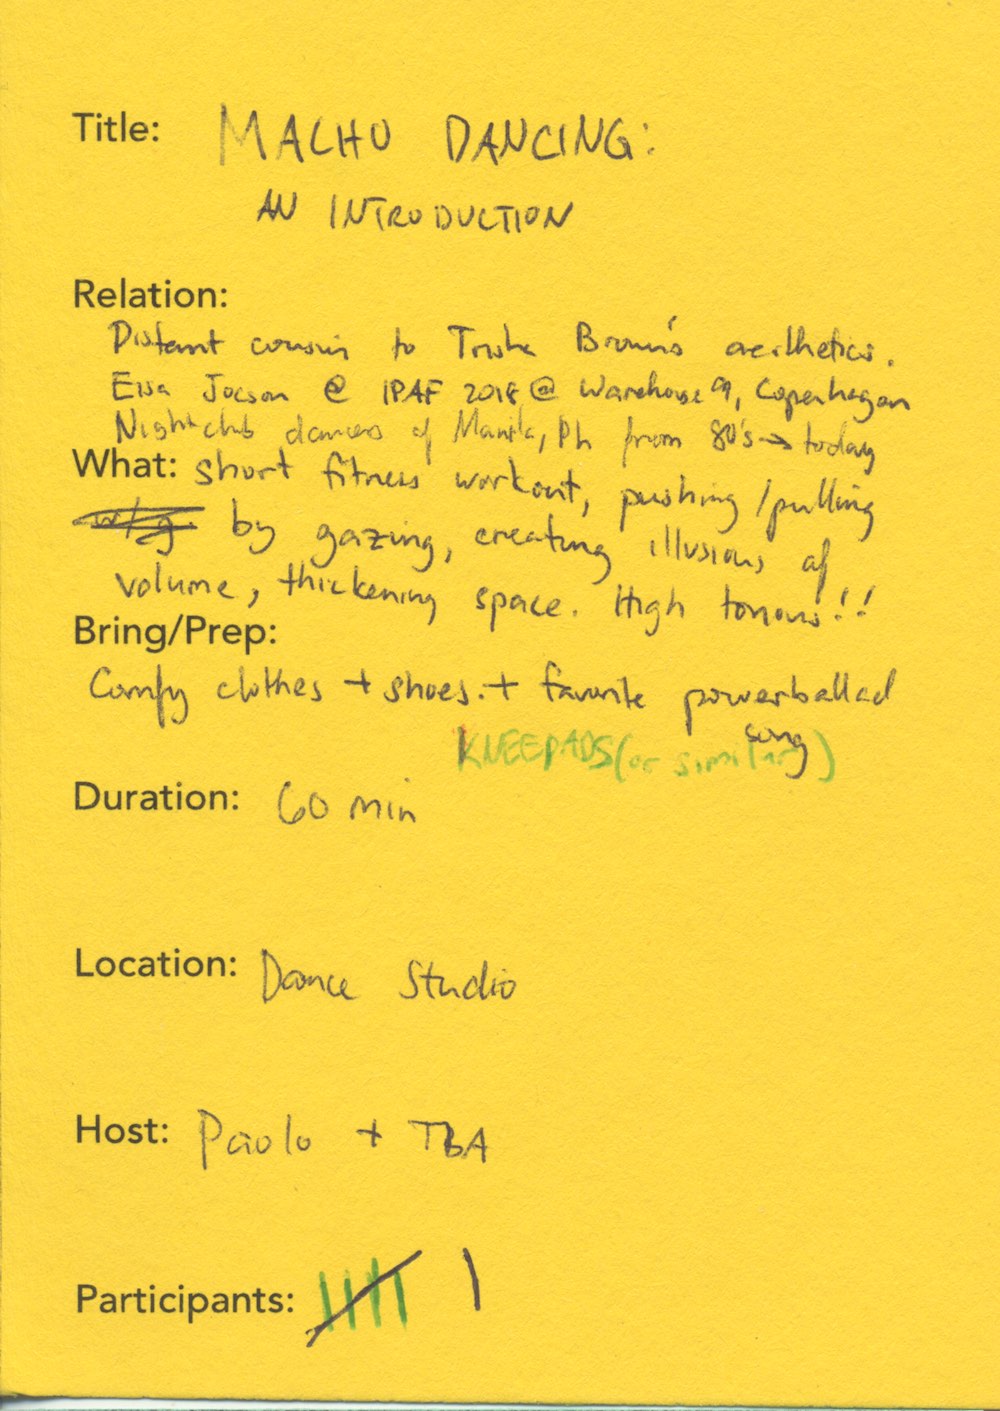 Title: MACHO DANCING:
AN INTRODUCTION
Relation:
Distant cousin to Trisha Brown's aesthetics.
Eisa Jocson @ IPAF 2018 @ Warehouse9, Copenhagen
Nightclub dancers of Manila, Ph from 80's → today
What: short fitness workout, pushing/pulling
by gazing, creating illusions of
volume, thickening space. High tonus!!
Bring/Prep:
Comfy clothes + shoes. + favorite powerballad
song
KNEEPADS (or similar)
Duration: 60 min
Location: Dance Studio
Host: Paolo + TBA
Participants: